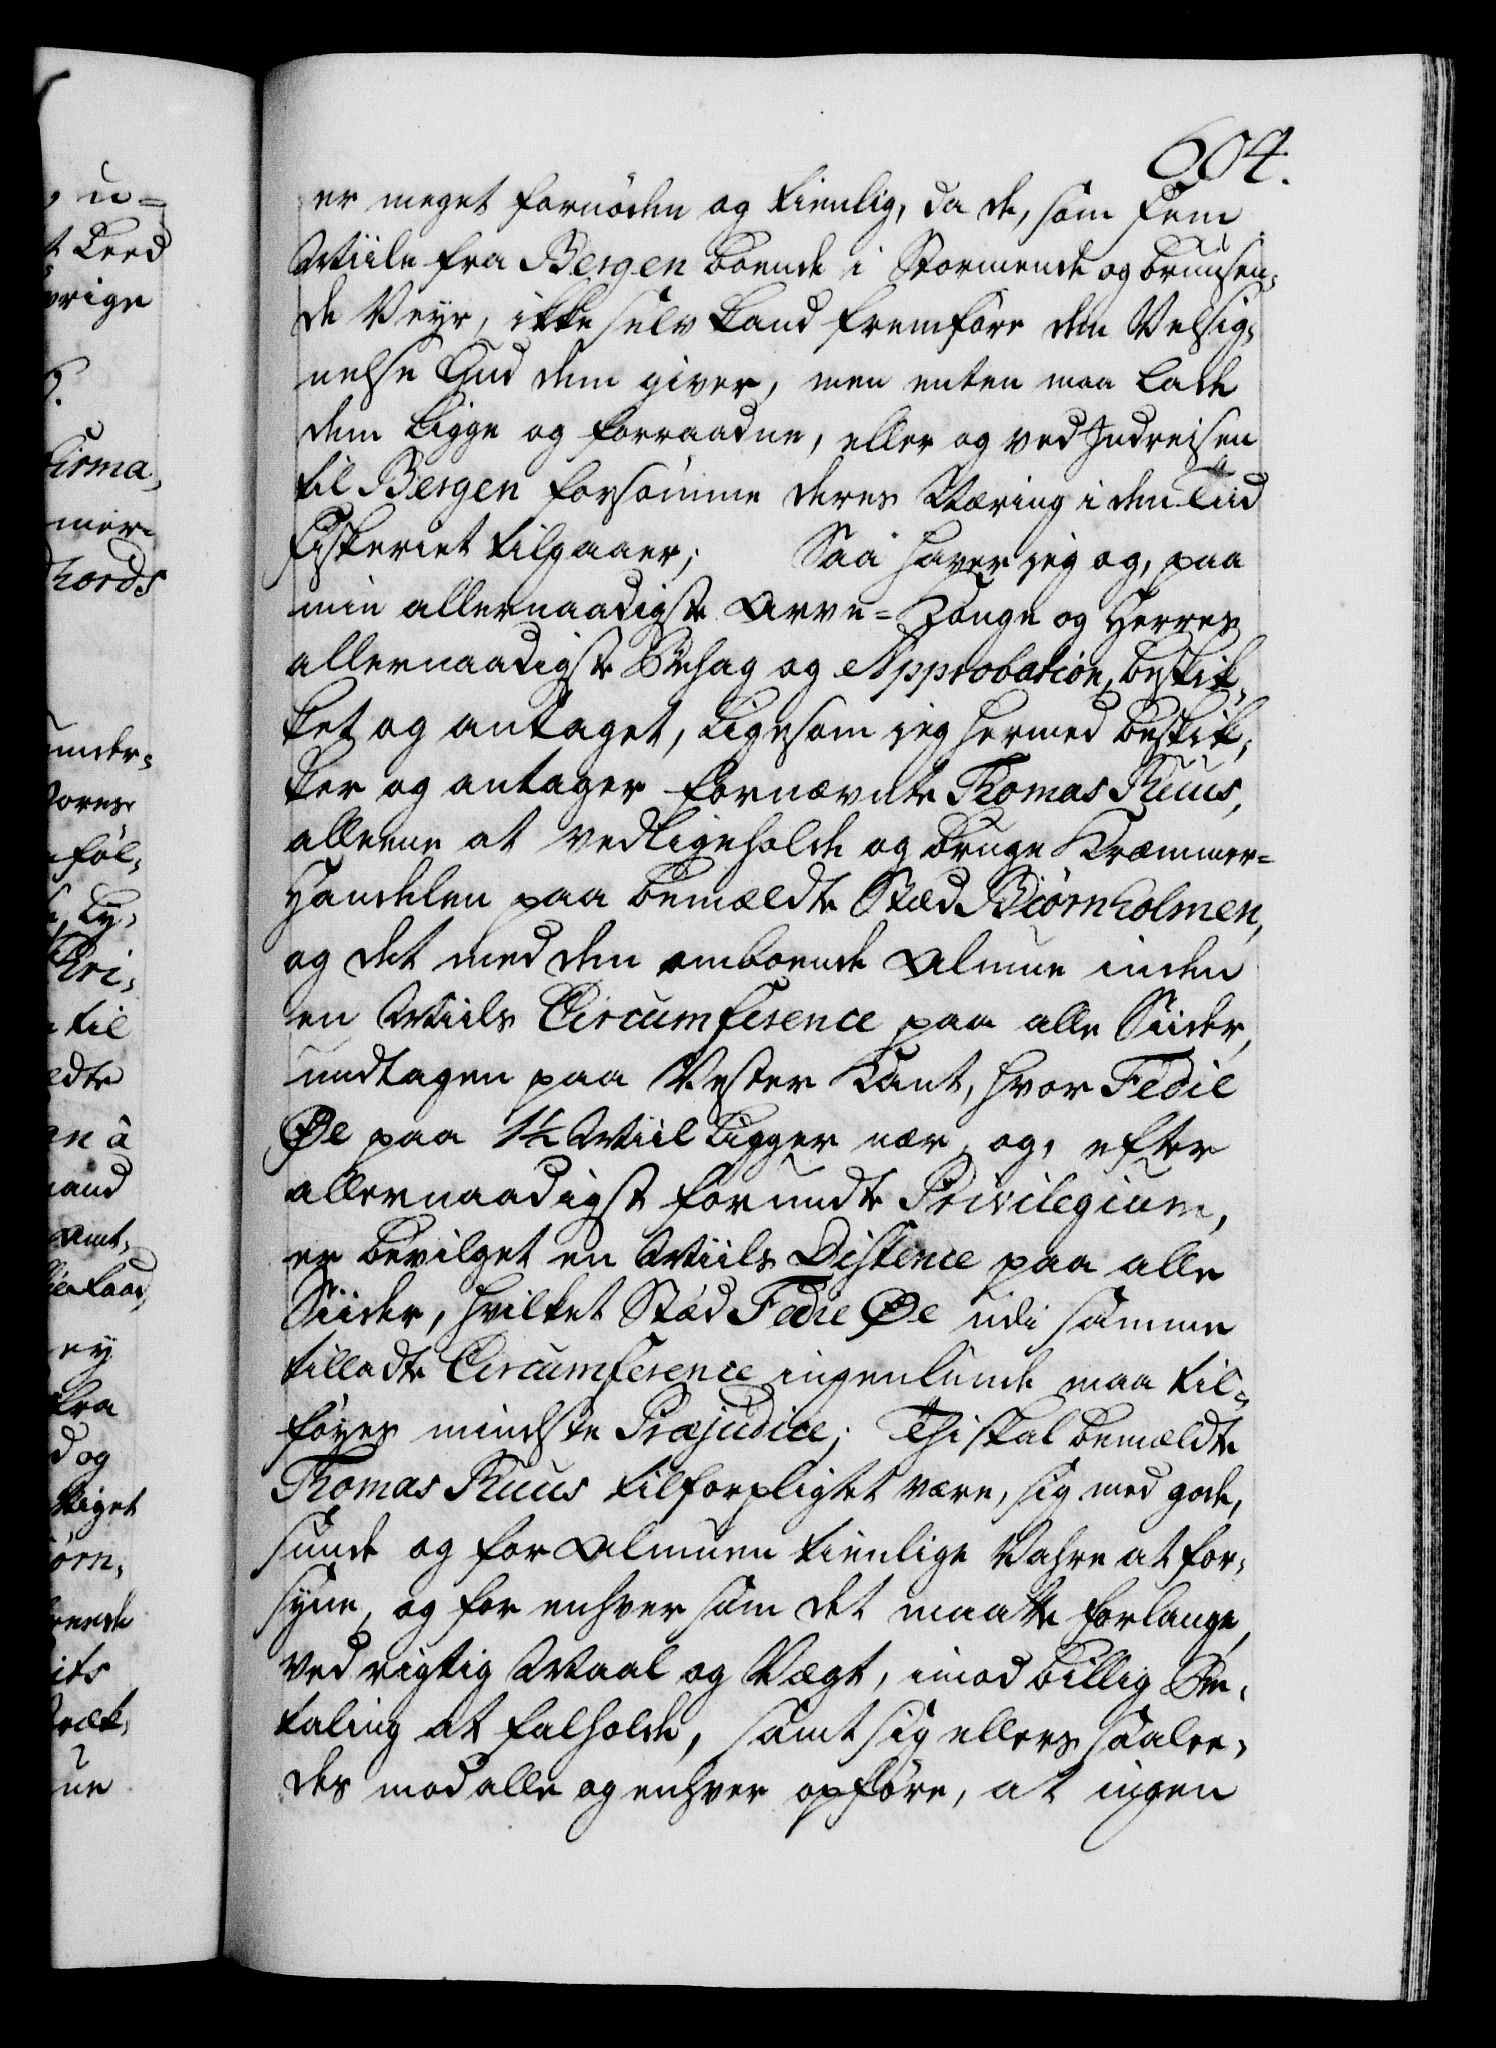 604.
er meget fornöden og tienlig, da de, som fem
Miile fra Bergen boende i Stormende og bruusen-
de Veyr, ikke selv kand fremföre den Velsig-
nelse Gud dem giver, men enten maa lade
dem ligge og forraadne, eller og ved Indreisen
til Bergen forsömme deres Næring i den Tiid
Fiskeriet tilgaaer; Saa haver jeg og, paa
min allernaadigste Arve-Konge og Herres
allernaadigste Behag og Approbation, beskik-
ket og antaget, ligesom jeg hermed beskik-
ker og antager fornævnte Thomas Ruus,
alleene at vedligeholde og bruge Kræmmer-
Handelen paa bemældte Stæd Biörnholmen,
og det med den omboende Almue inden
en Miils Circumference paa alle Siider,
undtagen paa Vester Kant, hvor Fedie
Øe paa 1½ Miil ligger nær, og, efter
allernaadigst forundte Privilegium,
er bevilget en Miils Distence paa alle
Siider, hvilket Stæd Fedie Øe udi samme
tilladte Circumference ingenlunde maa til-
föyes mindste Præjudice; Thi skal bemældte
Thomas Ruus tilforpligtet være, sig med gode,
sunde og for Almuen tienlige Vahre at for-
syne, og for enhver som det maatte forlange,
ved rigtig Maal og Vægt, imod billig Be-
taling at falholde, samt sig ellers saale-
des mod alle og enhver opföre, at ingen